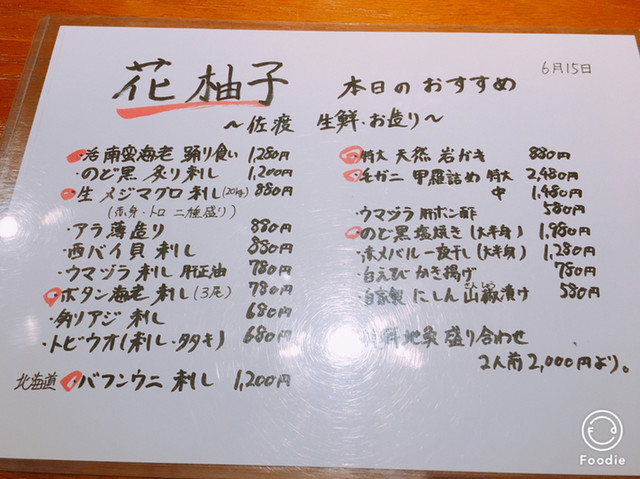 花柚子 本日のおすすめ 6月15日
~佐渡 生鮮・お造り~
・活南蛮海老 踊り食い 1,280円
・のど黒 炙り刺し 1,200円
・生メジマグロ刺し(20kg) 880円
(赤身・トロ 二種盛り)
・アラ薄造り 880円
・西バイ貝刺し 880円
・ウマヅラ刺し 肝正油 780円
・ボタン海老刺し(3尾) 780円
・釣りアジ刺し 680円
・トビウオ(刺し・タタキ) 680円
北海道・バフンウニ刺し 1,200円
・特大 天然 岩がき 880円
・毛ガニ 甲羅詰め 特大 2,480円
中 1,480円
・ウマヅラ 肝ポン酢 580円
・のど黒塩焼き(大半身) 1,980円
・赤メバル一夜干し(大半身) 1,280円
・白えびかき揚げ 780円
・自家製 にしん山椒漬け 580円
さんしょう
盛り合わせ
2人前2,000円より。
Foodie